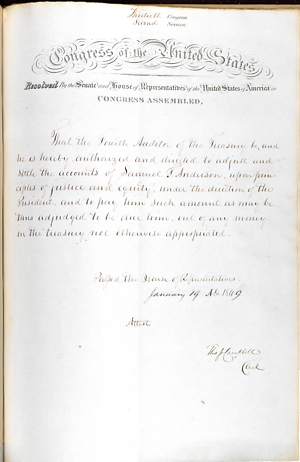 Thirtieth Congress
Second Session
Congress of the United States,
Resolved By the Senate and House of Representatives of the United States of America in
CONGRESS ASSEMBLED,
That the Fourth Auditor of the Treasury be, and
he is hereby authorized and directed to adjust and
settle the accounts of Samuel T. Anderson, upon prin-
ciples of justice and equity, under the direction of the
President, and to pay him such amount as may be
thus adjudged to be due him, out of any money
in the treasury not otherwise appropriated.
Passed the House of Representatives
January 19 AD 1849
Attest
Tho J Campbell
Clerk